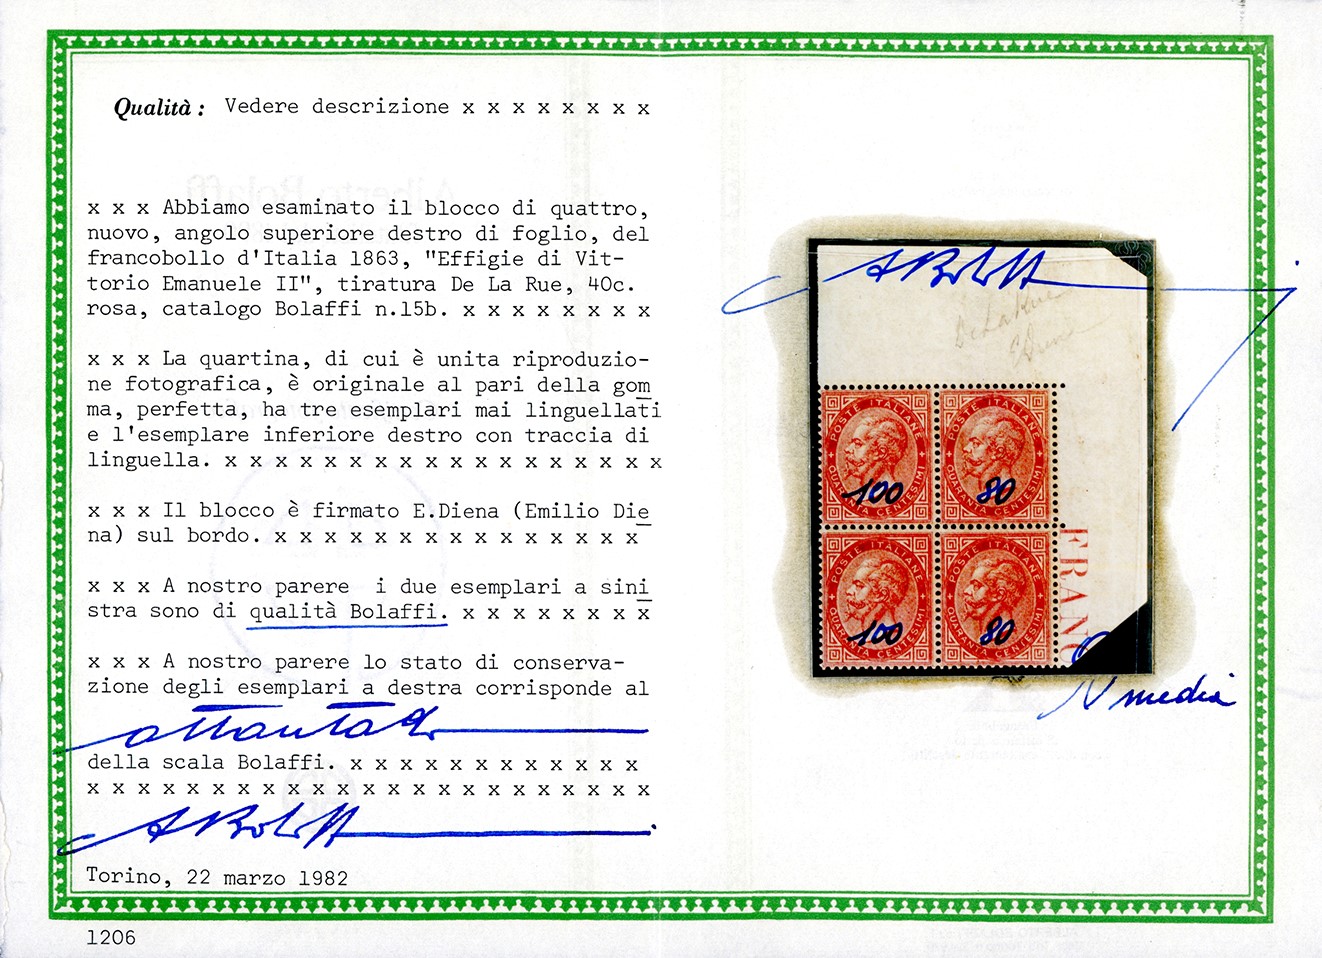 Qualità : Vedere descrizione x x x x x x x x
x x x Abbiamo esaminato il blocco di quattro,
nuovo, angolo superiore destro di foglio, del
francobollo d'Italia 1863, "Effigie di Vit-
torio Emanuele II", tiratura De La Rue, 40c.
rosa, catalogo Bolaffi n.15b. x x x x x x x x
x x x La quartina, di cui è unita riproduzio-
ne fotografica, è originale al pari della gom
ma, perfetta, ha tre esemplari mai linguellati
e l'esemplare inferiore destro con traccia di
linguella. x x x x x x x x x x x x x x x x x x
x x x Il blocco è firmato E.Diena (Emilio Die
na) sul bordo. x x x x x x x x x x x x x x x
x x x A nostro parere i due esemplari a sini
stra sono di qualità Bolaffi. x x x x x x x x
x x x A nostro parere lo stato di conserva-
zione degli esemplari a destra corrisponde al
ottanta
della scala Bolaffi. x x x x x x x x x x x x
x x x x x x x x x x x x x x x x x x x x x x x
A Bolaffi
Torino, 22 marzo 1982
1206
A Bolaffi
De La Rue
EDiena
POSTE ITALIANE
QUARANTA CENTESIMI
100
POSTE ITALIANE
QUARANTA CENTESIMI
80
POSTE ITALIANE
QUARANTA CENTESIMI
100
POSTE ITALIANE
QUARANTA CENTESIMI
80
FRANC
media